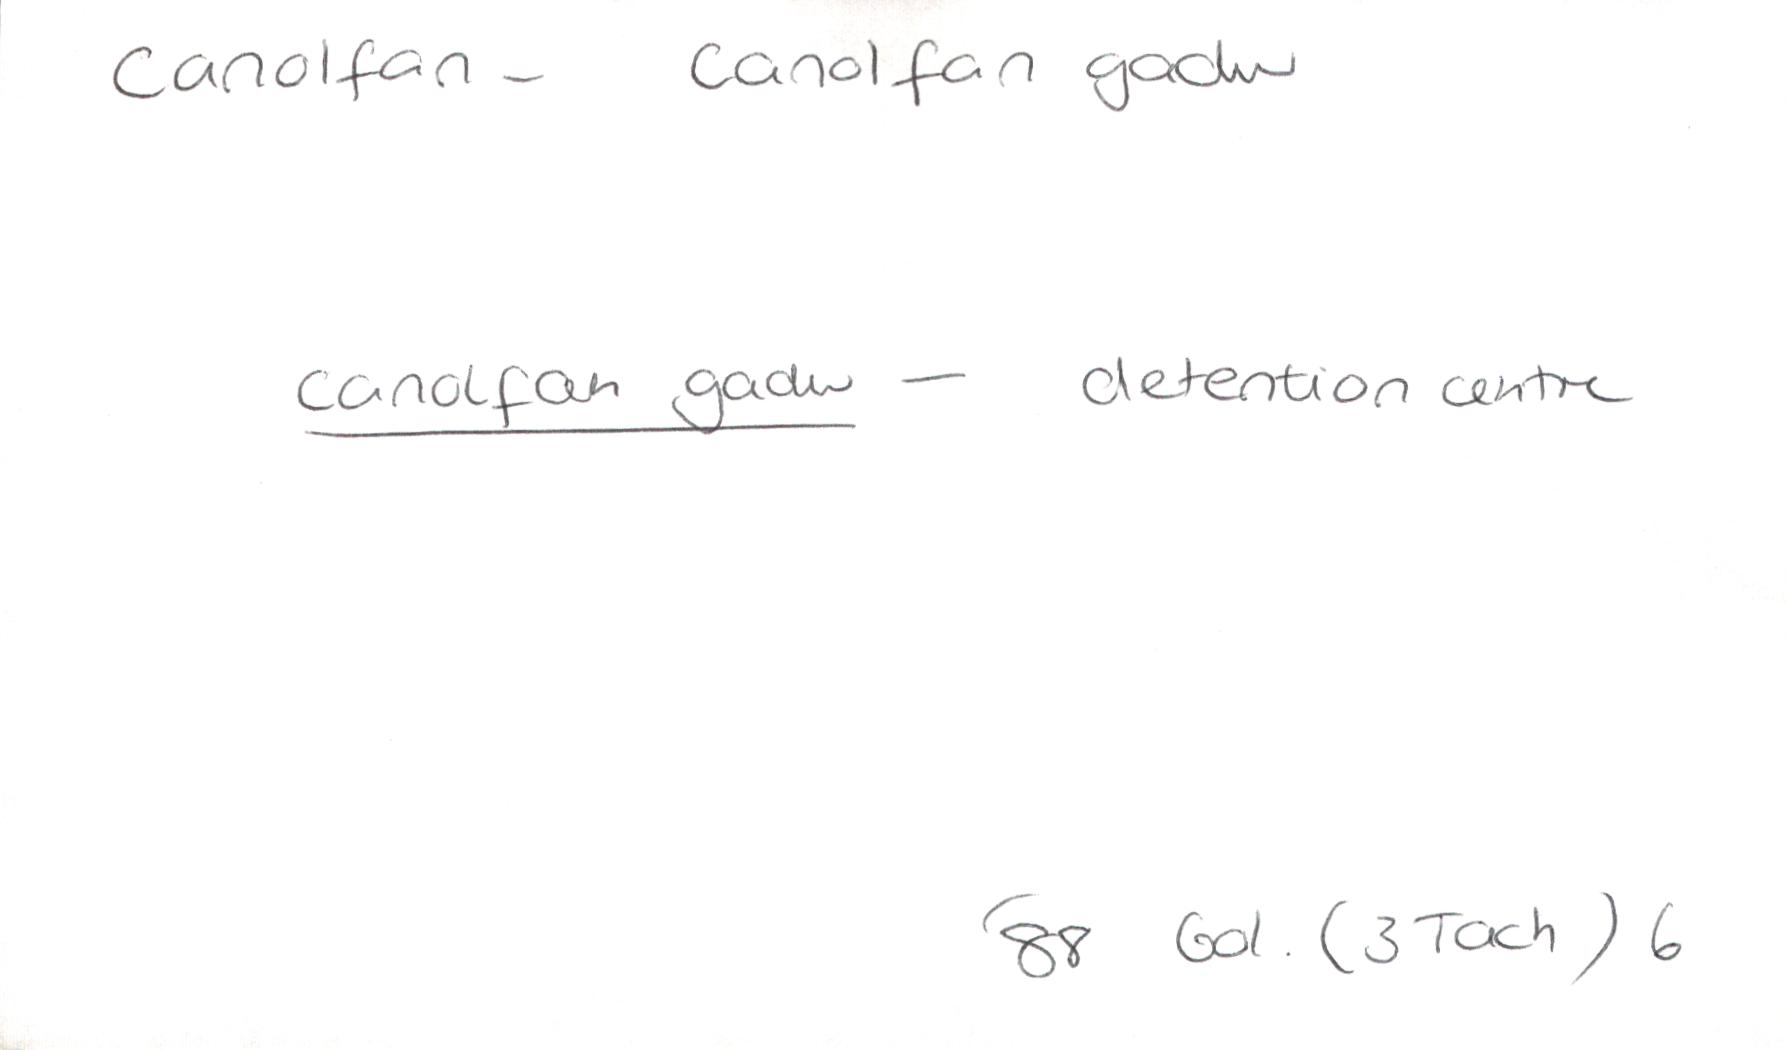 Canolfan - Canolfan gadw
canolfan gadw - detention centre
'88 Gol. (3 Tach) 6